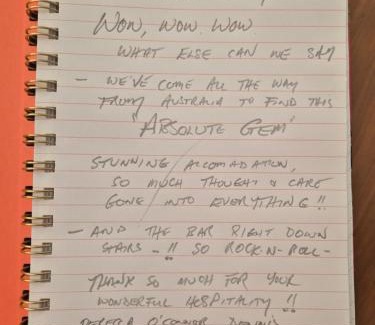 WOW, WOW WOW
WHAT ELSE CAN WE SAY
- WE'VE COME ALL THE WAY
FROM AUSTRALIA TO FIND THIS
'ABSOLUTE GEM'
STUNNING ACCOMADATION,
SO MUCH THOUGHT & CARE
GONE INTO EVERYTHING!!
- AND THE BAR RIGHT DOWN
STAIRS -!! SO ROCK-N-ROLL-
THANX SO MUCH FOR YOUR
WONDERFUL HOSPITALITY!!
O'CONNOR